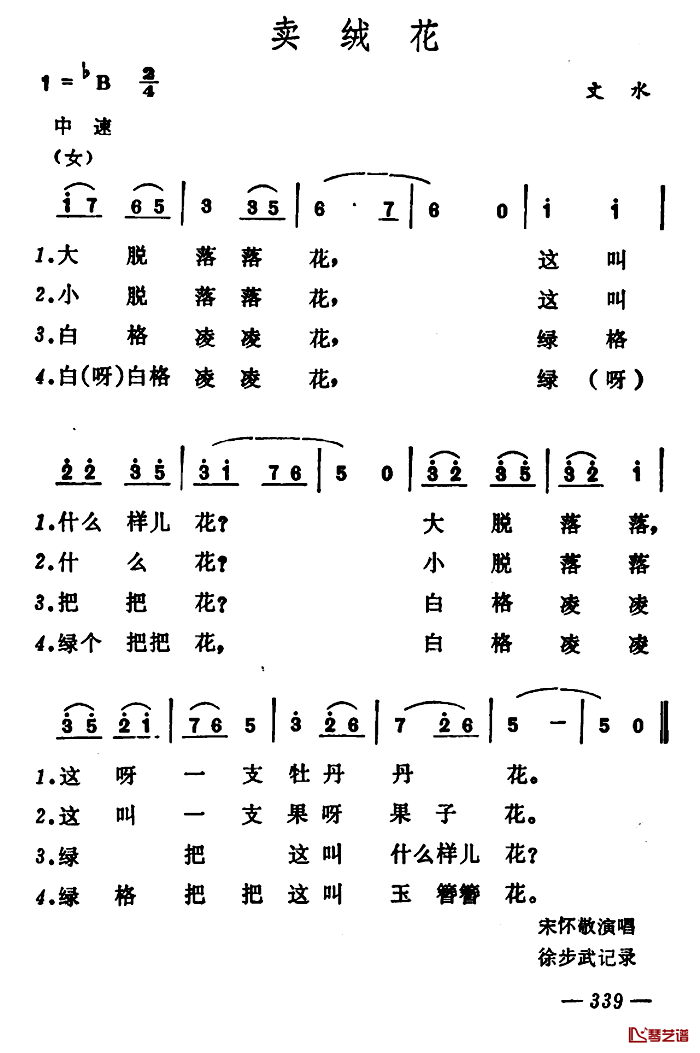 卖绒花
1=♭B 2/4
文水
中速
(女)
i7 65 | 3 35 | 6 · 7 | 6 0 | i i |
1.大脱落落花，这叫
2.小脱落落花，这叫
3.白格凌凌花，绿格
4.白(呀)白格凌凌花，绿(呀)
22 35 | 3i 76 | 5 0 | 32 35 | 32 i |
1.什么样儿花？大脱落落，
2.什么花？小脱落落
3.把把花？白格凌凌
4.绿个把把花，白格凌凌
35 2i | 76 5 | 3 26 | 7 26 | 5 — | 5 0 ‖
1.这呀一支牡丹丹花。
2.这叫一支果呀果子花。
3.绿把这叫什么样儿花？
4.绿格把把这叫玉簪簪花。
宋怀敬演唱
徐步武记录
— 339 —
琴艺谱